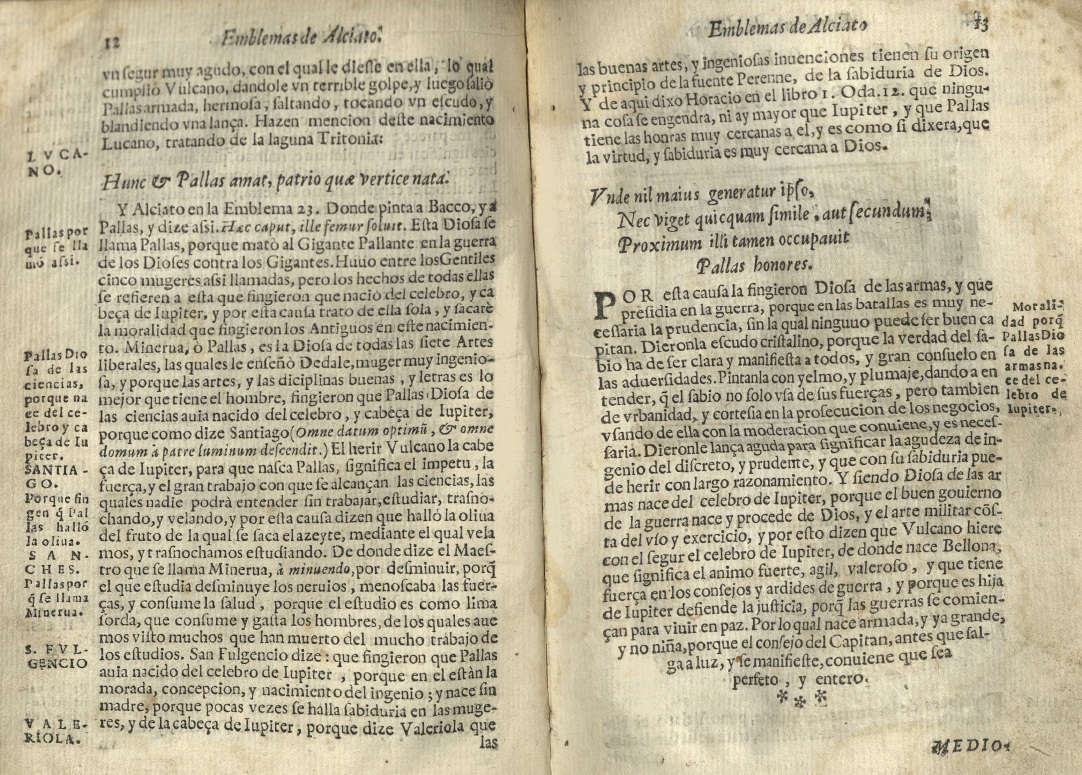 12
Emblemas de Alciato.
vn segur muy agudo, con el qual le diesse en ella, lo qual
cumpliò Vulcano, dandole vn terrible golpe, y luego saliò
Pallas armada, hermosa, saltando, tocando vn escudo, y
blandiendo vna lança. Hazen mencion deste nacimiento
Lucano, tratando de la laguna Tritonia:
LVCA-
NO.
Hunc & Pallas amat, patrio quæ vertice nata.
Y Alciato en la Emblema 23. Donde pinta a Bacco, y a
Pallas, y dize assi. Hæc caput, ille femur soluit. Esta Diosa se
llama Pallas, porque matò al Gigante Pallante en la guerra
de los Dioses contra los Gigantes. Huuo entre los Gentiles
cinco mugeres assi llamadas, pero los hechos de todas ellas
se refieren a esta que fingieron que naciò del celebro, y ca
beça de Iupiter, y por esta causa trato de ella sola, y sacarè
la moralidad que fingieron los Antiguos en este nacimien-
to. Minerua, ò Pallas, es la Diosa de todas las siete Artes
liberales, las quales le enseñò Dedale, muger muy ingenio-
sa, y porque las artes, y las diciplinas buenas, y letras es lo
mejor que tiene el hombre, fingieron que Pallas Diosa de
las ciencias auia nacido del celebro, y cabeça de Iupiter,
porque como dize Santiago (Omne datum optimũ, & omne
domum à patre luminum descendit.) El herir Vulcano la cabe
ça de Iupiter, para que nasca Pallas, significa el impetu, la
fuerça, y el gran trabajo con que se alcançan las ciencias, las
quales nadie podrà entender sin trabajar, estudiar, trasno-
chando, y velando, y por esta causa dizen que hallò la oliua
del fruto de la qual se saca el azeyte, mediante el qual vela
mos, y trasnochamos estudiando. De donde dize el Maes-
tro que se llama Minerua, à minuendo, por desminuir, porq̃
el que estudia desminuye los neruios, menoscaba las fuer-
ças, y consume la salud, porque el estudio es como lima
sorda, que consume y gasta los hombres, de los quales aue
mos visto muchos que han muerto del mucho trabajo de
los estudios. San Fulgencio dize: que fingieron que Pallas
auia nacido del celebro de Iupiter, porque en el estàn la
morada, concepcion, y nacimiento del ingenio; y nace sin
madre, porque pocas vezes se halla sabiduria en las muge-
res, y de la cabeça de Iupiter, porque dize Valeriola que
las
Pallas por
que se lla
mò assi.
Pallas Dio
sa de las
ciencias,
porque na
ce del ce-
lebro y ca
beça de Iu
piter.
SANTIA-
GO.
Porque fin
gen q̃ Pal
las hallò
la oliua.
SAN-
CHES.
Pallas por
q̃ se llama
Minerua.
S. FVL-
GENCIO
VALE-
RIOLA.
Emblemas de Alciato
13
las buenas artes, y ingeniosas inuenciones tienen su origen
y principio de la fuente Perenne, de la sabiduria de Dios.
Y de aqui dixo Horacio en el libro 1. Oda. 12. que ningu-
na cosa se engendra, ni ay mayor que Iupiter, y que Pallas
tiene las honras muy cercanas a el, y es como si dixera, que
la virtud, y sabiduria es muy cercana a Dios.
Vnde nil maius generatur ipso,
Nec viget quicquam simile, aut secundum,
Proximum illi tamen occupauit
Pallas honores.
POR esta causa la fingieron Diosa de las armas, y que
presidia en la guerra, porque en las batallas es muy ne-
cessaria la prudencia, sin la qual ninguuo puede ser buen ca
pitan. Dieronla escudo cristalino, porque la verdad del sa-
bio ha de ser clara y manifiesta a todos, y gran consuelo en
las aduersidades. Pintanla con yelmo, y plumaje, dando a en
tender, q̃ el sabio no solo vsa de sus fuerças, pero tambien
de vrbanidad, y cortesia en la prosecucion de los negocios,
vsando de ella con la moderacion que conuiene, y es neces-
saria. Dieronle lança aguda para significar la agudeza de in-
genio del discreto, y prudente, y que con su sabiduria pue-
de herir con largo razonamiento. Y siendo Diosa de las ar
mas nace del celebro de Iupiter, porque el buen gouierno
de la guerra nace y procede de Dios, y el arte militar cõs-
ta del vso y exercicio, y por esto dizen que Vulcano hiere
con el segur el celebro de Iupiter, de donde nace Bellona,
que significa el animo fuerte, agil, valeroso, y que tiene
fuerça en los consejos y ardides de guerra, y porque es hija
de Iupiter defiende la justicia, porq̃ las guerras se comien-
çan para viuir en paz. Por lo qual nace armada, y ya grande,
y no niña, porque el consejo del Capitan, antes que sal-
ga a luz, y se manifieste, conuiene que sea
perfeto, y entero.
* * *
Morali-
dad porq̃
Pallas Dio
sa de las
armas na.
ce del ce-
lebro de
Iupiter.
MEDIO